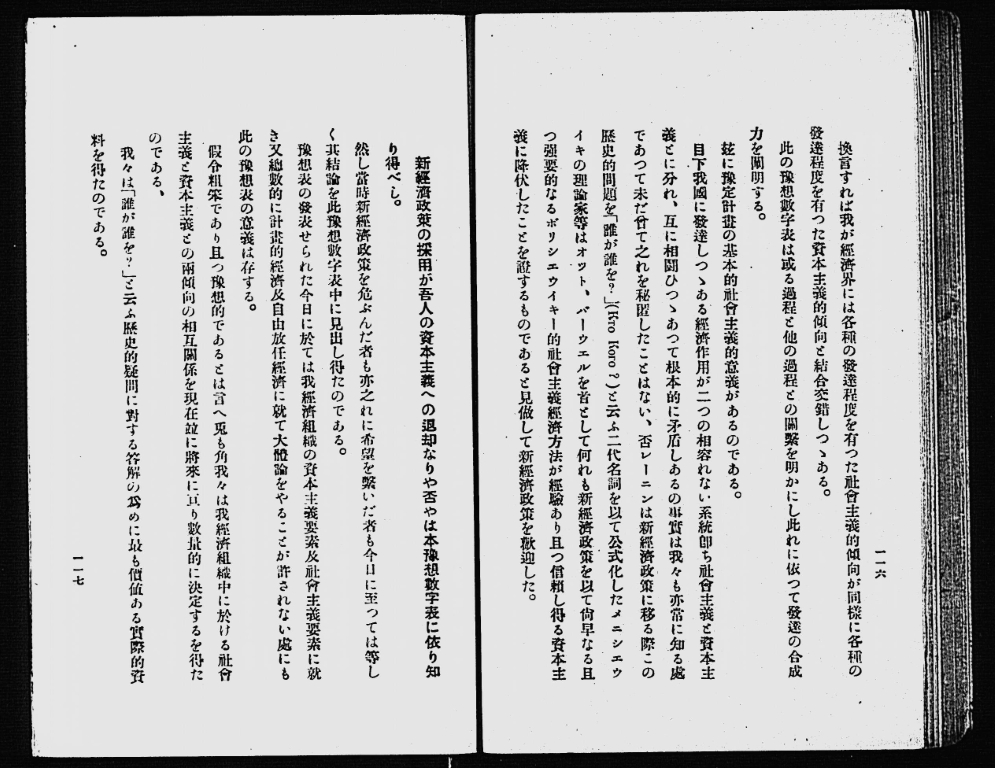 一一六
換言すれば我が經濟界には各種の發達程度を有つた社會主義的傾向が同樣に各種の
發達程度を有つた資本主義的傾向と結合交錯しつゝある。
此の豫想數字表は或る過程と他の過程との關繫を明かにし此れに依つて發達の合成
力を闡明する。
玆に豫定計畫の基本的社會主義的意義があるのである。
目下我國に發達しつゝある經濟作用が二つの相容れない系統卽ち社會主義と資本主
義とに分れ、互に相鬪ひつゝあつて根本的に矛盾しあるの事實は我々も亦常に知る處
であつて未だ曾て之れを秘匿したことはない、否レーニンは新經濟政策に移る際この
歷史的問題を「誰が誰を?」(Kto Koro ?)と云ふ二代名詞を以て公式化したメニシエウ
イキの理論家等はオツト、バーウエルを首として何れも新經濟政策を以て尙早なる且
つ强要的なるボリシエウイキー的社會主義經濟方法が經驗あり且つ信賴し得る資本主
義に降伏したことを證するものであると見做して新經濟政策を歡迎した。
新經濟政策の採用が吾人の資本主義への退却なりや否やは本豫想數字表に依り知
り得べし。
然し當時新經濟政策を危ぶんだ者も亦之れに希望を繫いだ者も今日に至つては等し
く其結論を此豫想數字表中に見出し得たのである。
豫想表の發表せられた今日に於ては我經濟組織の資本主義要素及社會主義要素に就
き又總數的に計畫的經濟及自由放任經濟に就て大體論をやることが許されない處にも
此の豫想表の意義は存する。
假令粗笨であり且つ豫想的であるとは言へ兎も角我々は我經濟組織中に於ける社會
主義と資本主義との兩傾向の相互關係を現在竝に將來に亘り數量的に決定するを得た
のである、
我々は「誰が誰を?」と云ふ歷史的疑問に對する答解の爲めに最も價値ある實際的資
料を得たのである。
一一七